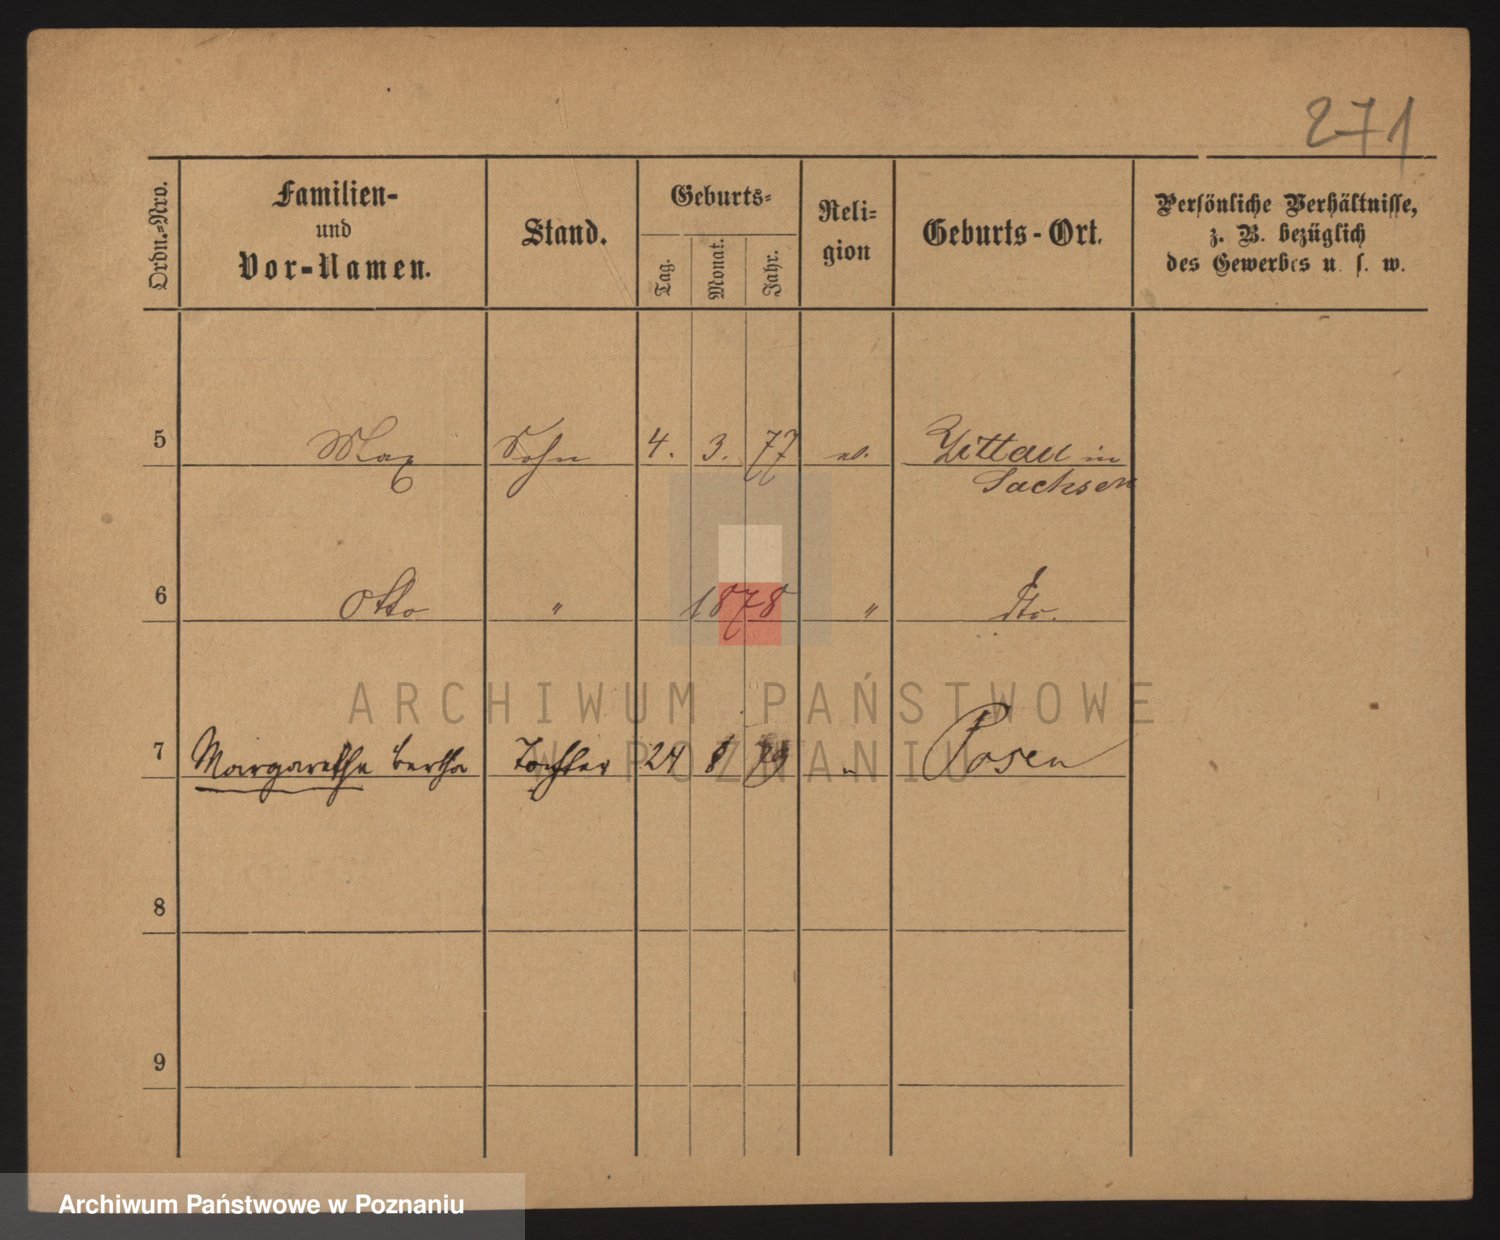 271
Ordn.-Nro.
Familien-
und
Vor-Namen.
Stand.
Geburts-
Tag.
Monat.
Jahr.
Reli-
gion
Geburts-Ort.
Persönliche Verhältnisse,
z. B. bezüglich
des Gewerbes u. s. w.
5 Max Sohn 4. 3. 77 ev. Zittau in
Sachsen
6 Otto " 1878 " dto.
7 Margarethe Bertha Tochter 24 8 79 " Posen
8
9
ARCHIWUM PAŃSTWOWE
W POZNANIU
Archiwum Państwowe w Poznaniu